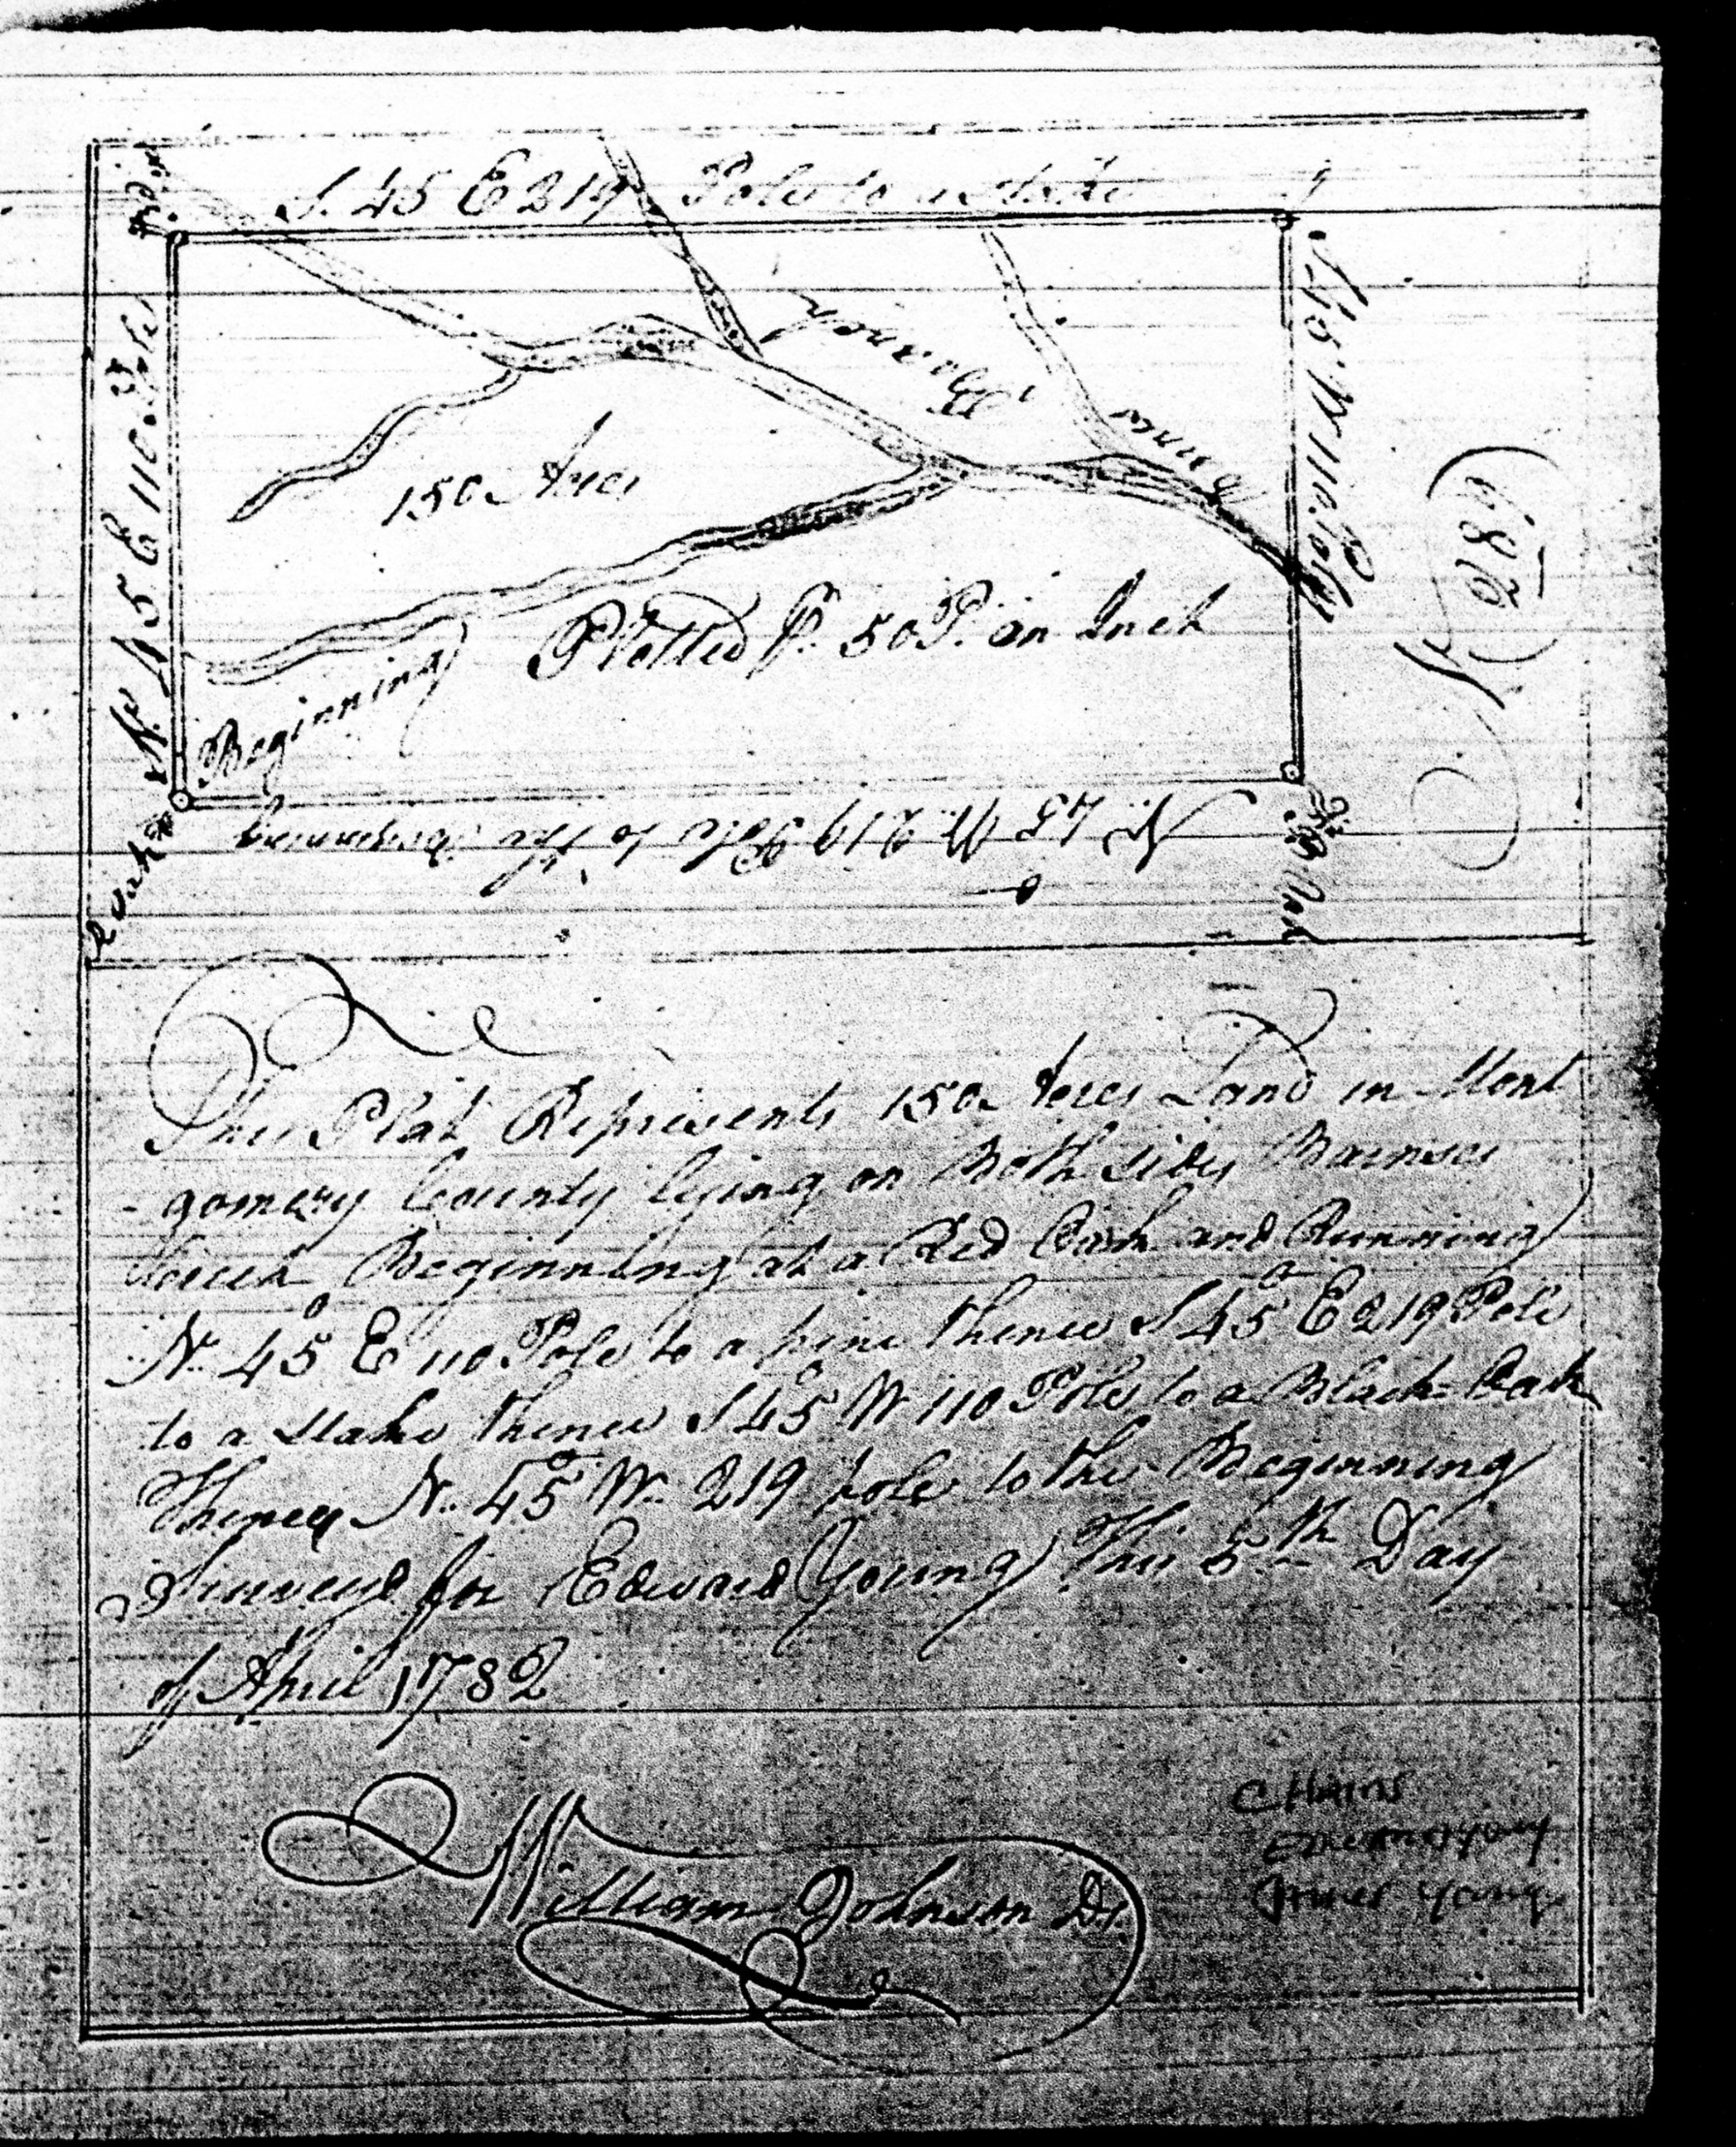 S. 45 E 219 Pole to a Stake
N. 45 E 110 Poles
S 45 W 110 Poles
Branch
150 Acres
Plotted p. 50 P. an Inch
Beginning
N. 45 W. 219 Pole to the Beginning
R oak
Bl Oak
This Plat Represents 150 Acres Land in Mont
- gomery County lying on Both sides
Beginning at a Red Oak and Running
N. 45° E 110 Pole to a pine thence S 45° E 219 Pole
to a Stake thence S 45° W 110 Pole to a Black Oak
Thence N. 45° W. 219 pole to the Beginning
Surveyd for Edward Young This 5th Day
of April 1782
William Johnson D.s.
Chains
Young
James Young